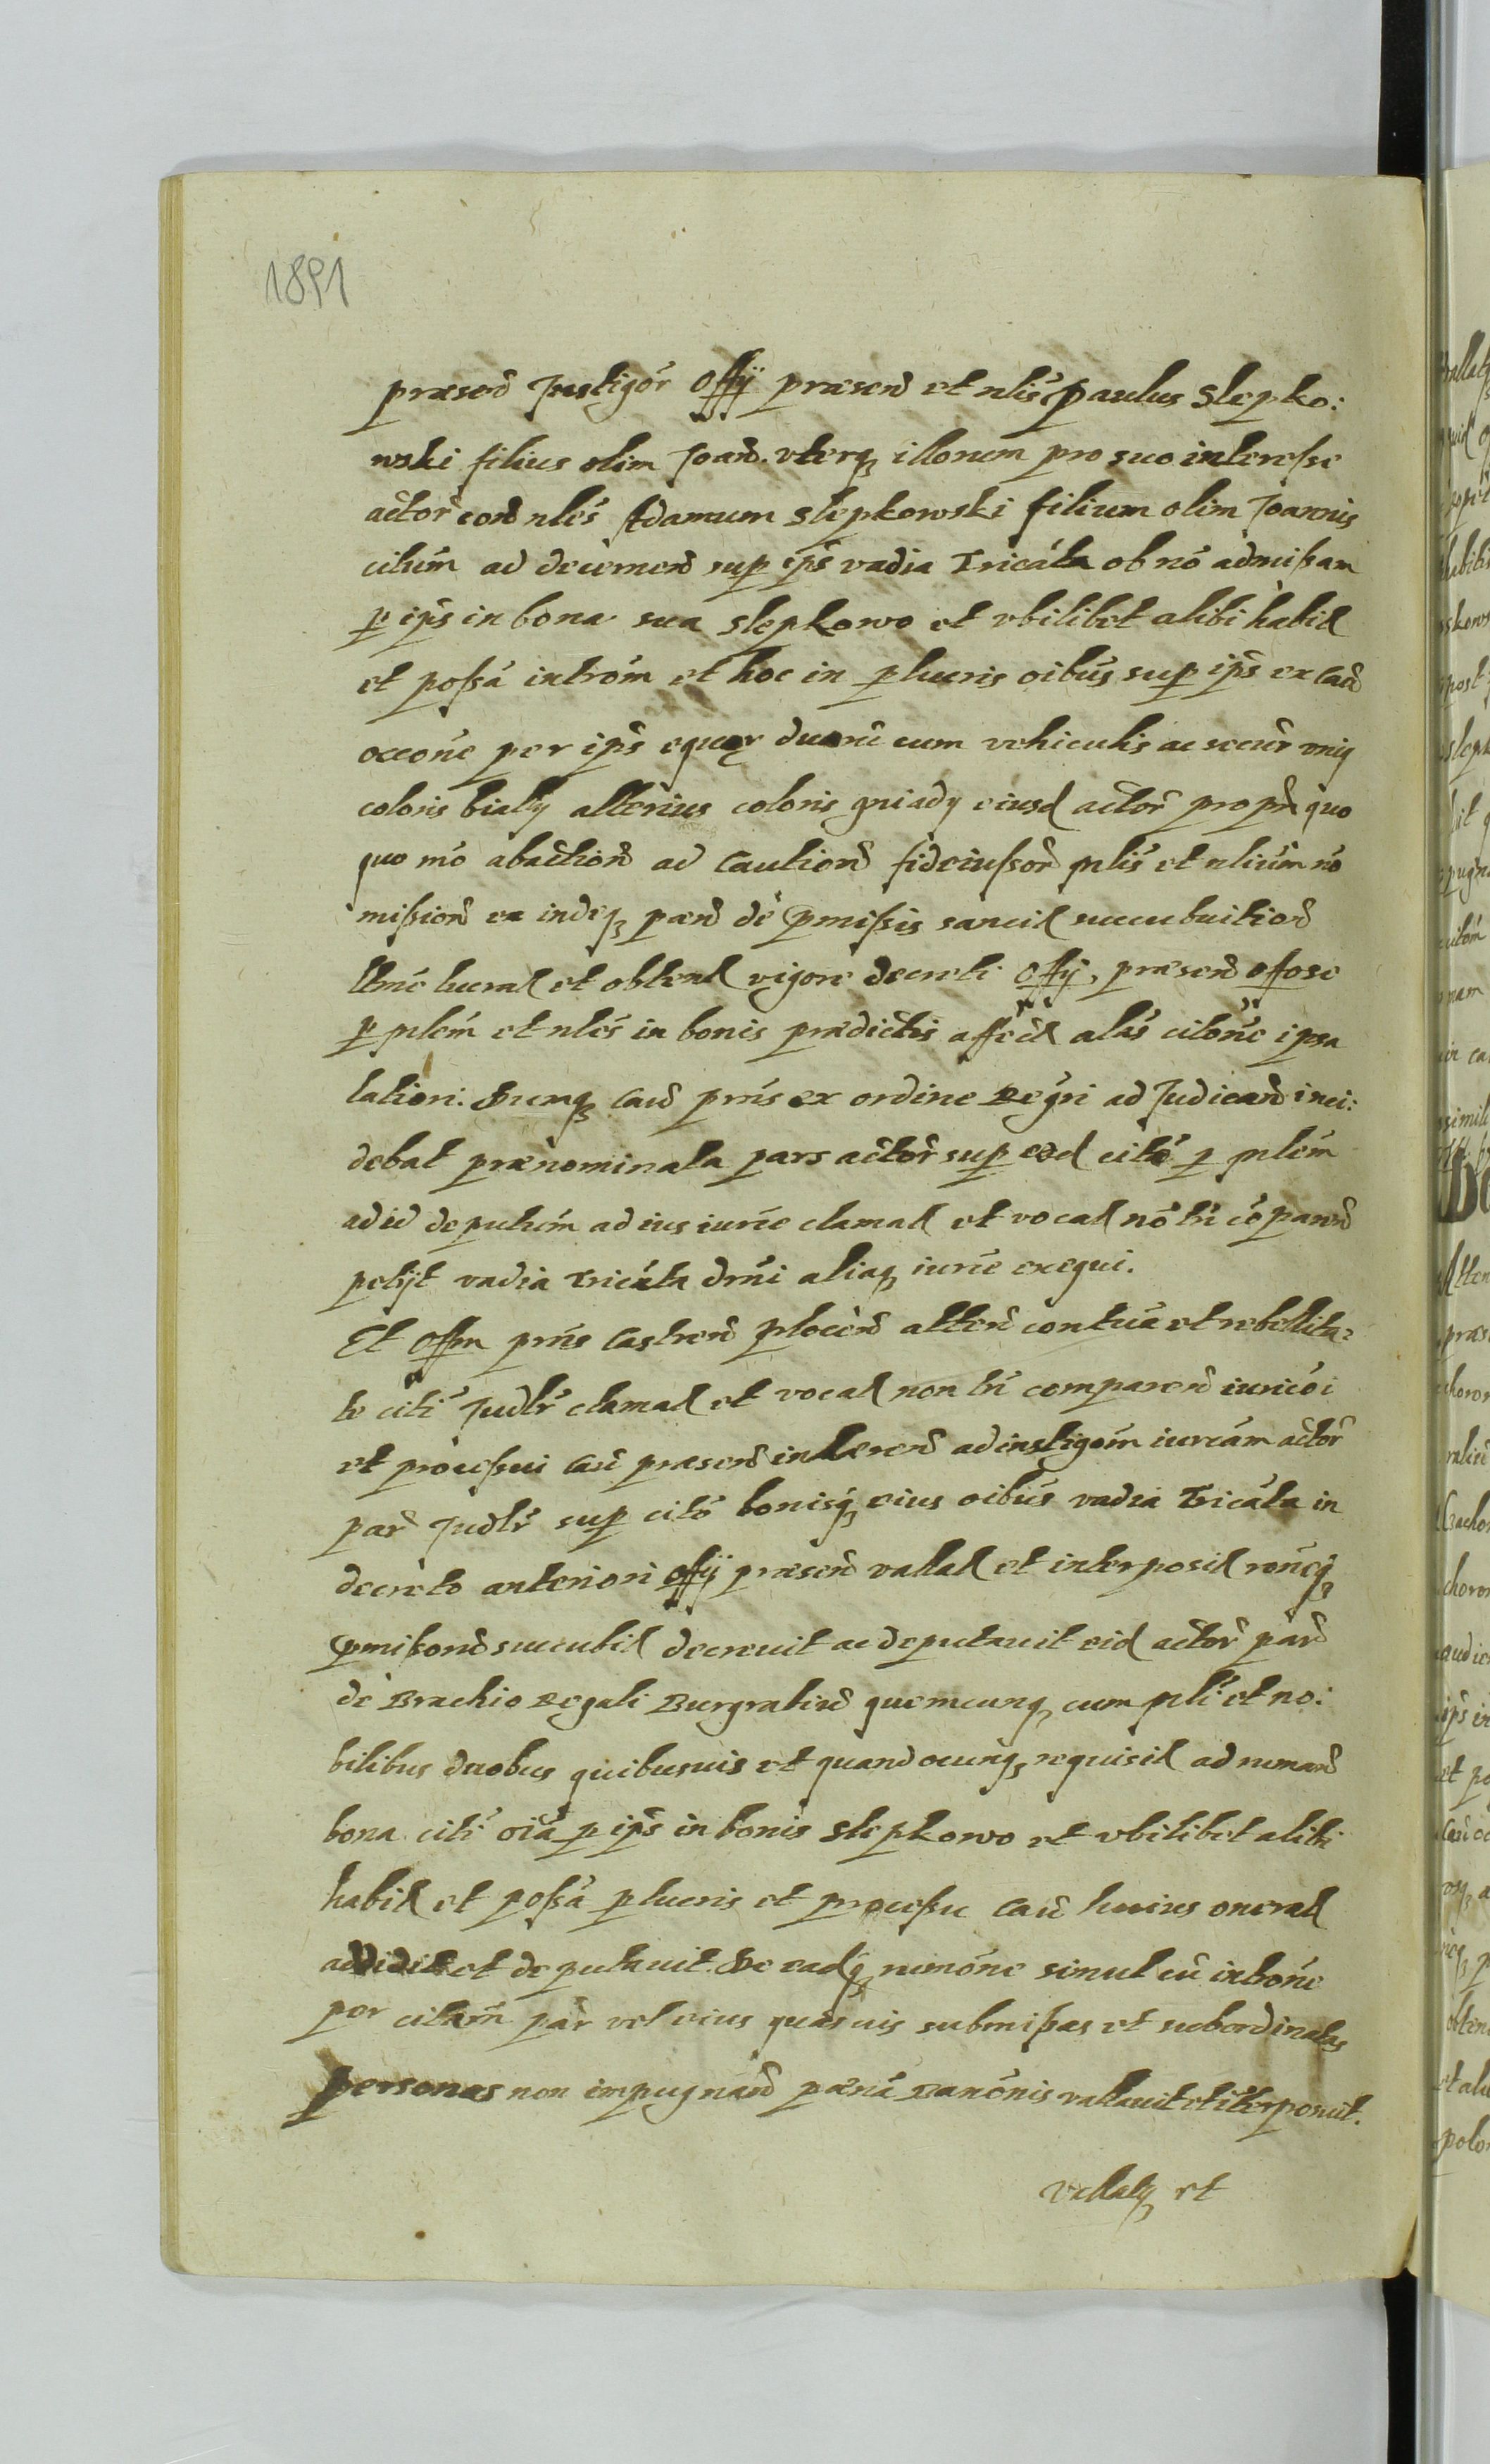 1891
præsen Instigor Offij præsen et nlis Paulus Slepko:
wski filius olim Joan. vterq illorum pro suo interesse
actor con nles Adamum Slepkowski filium olim Joannis
citum ad decernen sup ips vadia Tricata ob no admissam
p ips in bona sua Slepkowo et vbilibet alibi habit
et possa introm et hoc in p lucris oibus sup ips ex Cau
occone per ips equor duoru cum vehiculis ac secur vniq
coloris biały alterius coloris gniady eiusd actor propr quo
quo mo abaction ad Caution fideiussor plis et nlium no
mission ex indeq pæn de pmissis sancit succubuition
ltme lucrat et obtent vigore decreti Offij, præsen
p plem et nles in bonis prædictis alas citone ipsa
lation: Dumq Cau prns ex ordine Regri ad Judicand inci:
debat prænominata pars actor sup eod cito p plem
ad id deputum ad ius iurie clamat et vocat no tn coparen
petijt vadia Tricata drni aliaq iurie exequi.
Et Offm prns Castren Plocen atten contua et rebellita:
te citi Judlr clamat et vocat non tn comparen iurico i
et processui Cau præsen inhæren ad instigom iurcam actor
par Judlr sup cito bonisq eius oibus vadia Tricata in
decreto anteriori Offij præsen vallat et interposit roneq
pmisson succubit decreuit ac deputauit eid actor par
de Brachio Regali Burgrabiu quemcunq cum pli et no:
bilibus duobus quibusuis et quandocunq requisit ad ruman
bona citi oia p ips in bonis Slepkowo et vbilibet alibi
habit et possa p lucris et processu Cau huius onerat
addidit et deputauit. De eadq rumone simul cu introne
per citam par vel eius quasuis submissas et subordinatas
personas non impugnan pæna Banonis vallauit et iterposuit.
Vallatq et